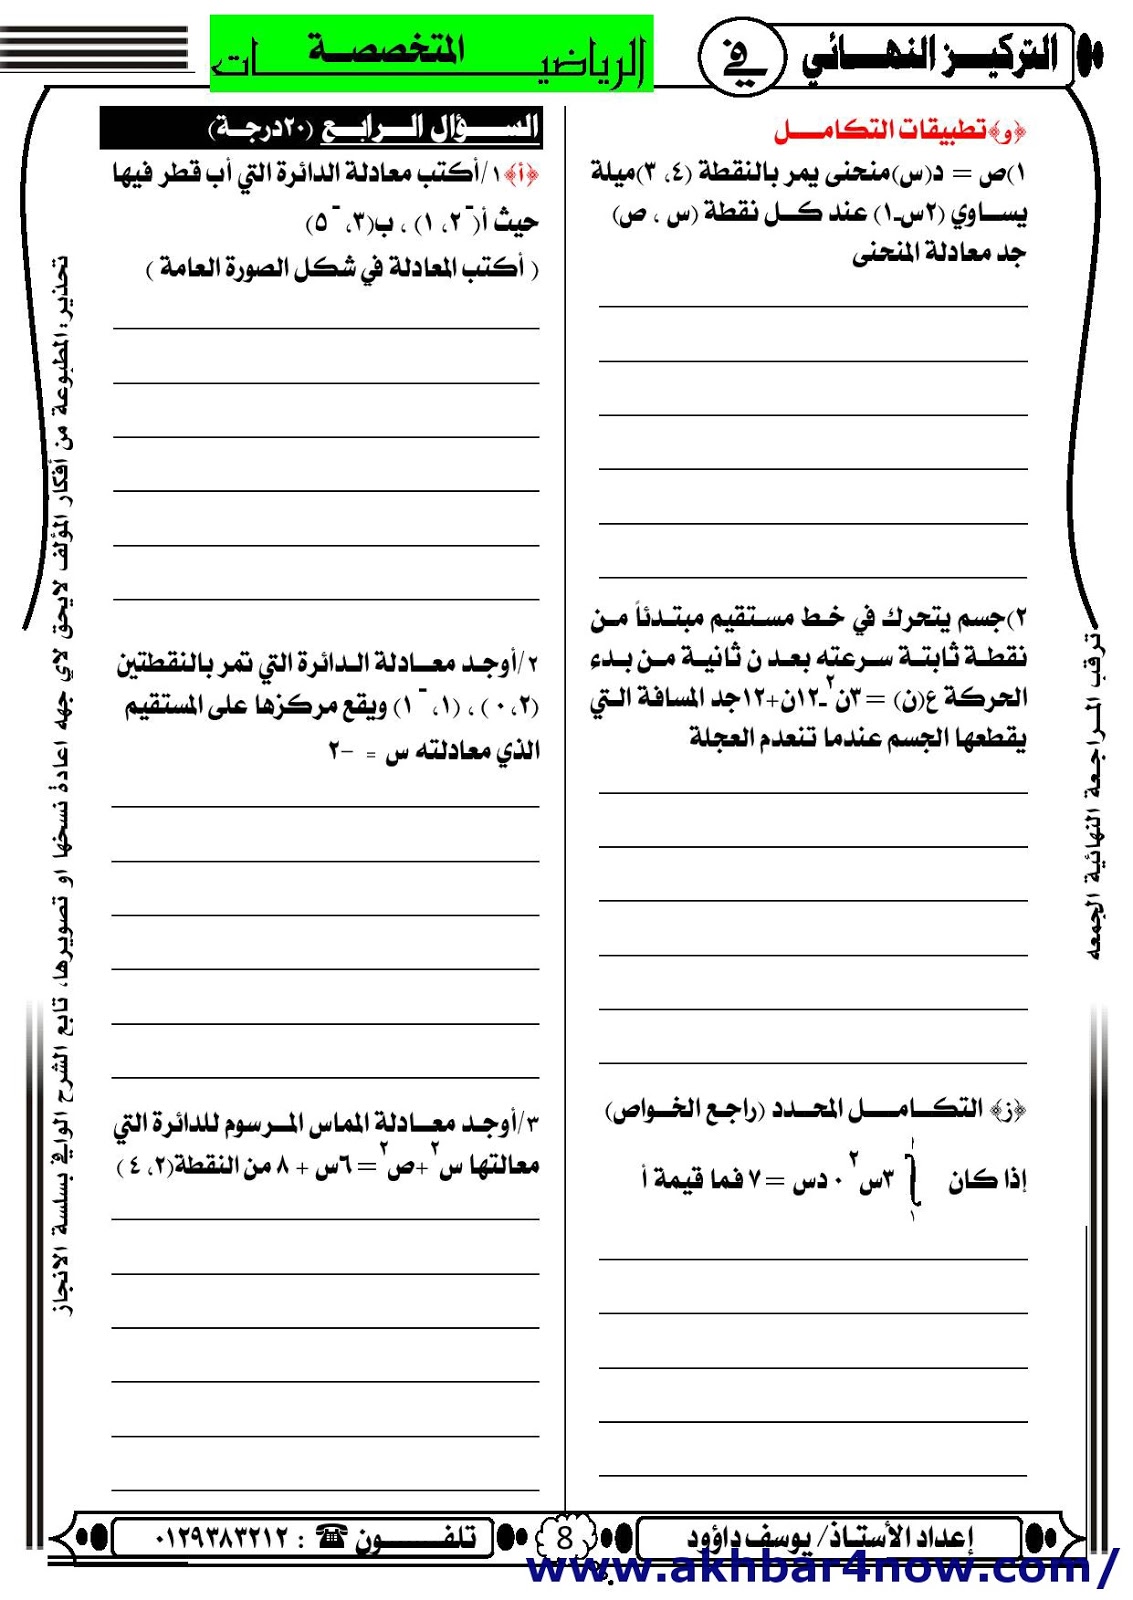 التركيز النهائي في الرياضيات المتخصصة
﴿و﴾تطبيقات التكامل
١)ص = د(س)منحنى يمر بالنقطة (٤، ٣)ميلة
يساوي (٢س-١) عند كل نقطة (س ، ص)
جد معادلة المنحنى
٢)جسم يتحرك في خط مستقيم مبتدئاً من
نقطة ثابتة سرعته بعد ن ثانية من بدء
الحركة ع(ن) = ٣ن٢-١٢ن+١٢جد المسافة التي
يقطعها الجسم عندما تنعدم العجلة
﴿ز﴾ التكامل المحدد (راجع الخواص)
إذا كان ∫١أ ٣س٢ ٠ دس = ٧ فما قيمة أ
السؤال الرابع (٢٠درجة)
﴿أ﴾١/أكتب معادلة الدائرة التي أب قطر فيها
حيث أ(-٢، ١) ، ب(٣، -٥)
( أكتب المعادلة في شكل الصورة العامة )
٢/أوجد معادلة الدائرة التي تمر بالنقطتين
(٠،٢) ، (١، -١) ويقع مركزها على المستقيم
الذي معادلته س = -٢
٣/أوجد معادلة المماس المرسوم للدائرة التي
معالتها س٢+ص٢= ٦س + ٨ من النقطة(٢، ٤)
تحذير: المطبوعة من أفكار المؤلف لايحق لاي جهه اعادة نسخها او تصويرها، تابع الشرح الوافي بسلسة الانجاز
ترقب المراجعة النهائية الجمعه
إعداد الأستاذ/ يوسف داؤود
8
تلفون ☎ : ٠١٢٩٣٨٣٢١٢
www.akhbar4now.com/